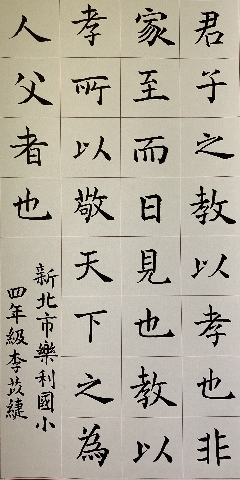 君子之教以孝也非
家至而日見也教以
孝所以敬天下之為
人父者也
新北市樂利國小
四年級李苡緁